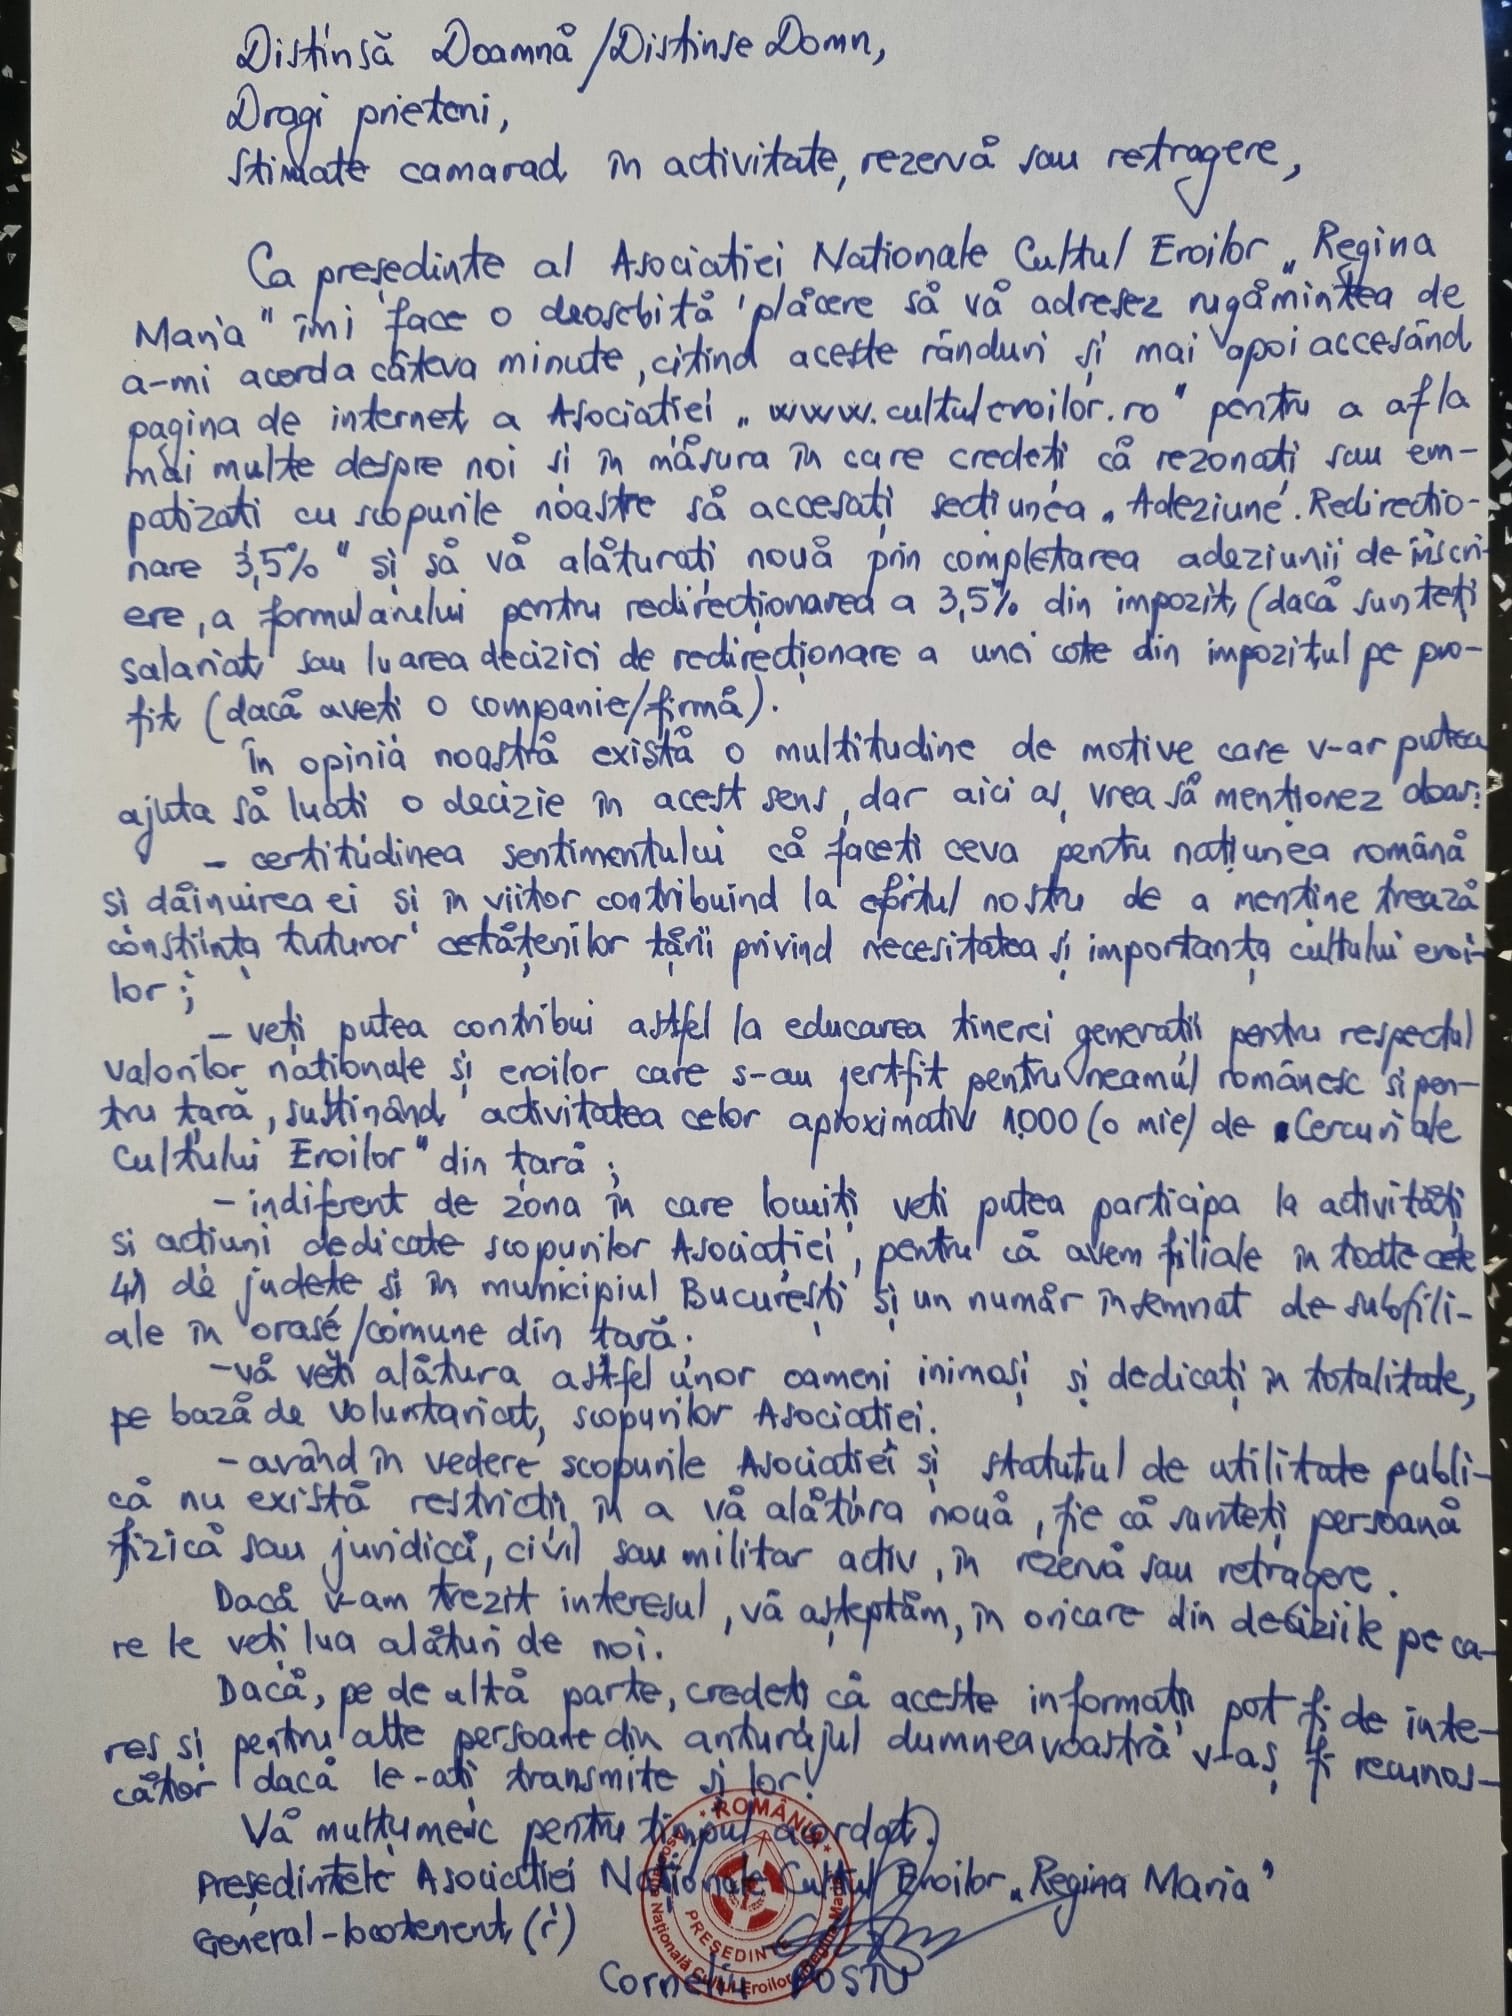 Distinsă Doamnă/Distinse Domn,
Dragi prieteni,
Stimate camarad în activitate, rezervă sau retragere,
Ca președinte al Asociației Naționale Cultul Eroilor „Regina
Maria" îmi face o deosebită plăcere să vă adresez rugămintea de
a-mi acorda câteva minute, citind aceste rânduri și mai apoi accesând
pagina de internet a Asociației „www.cultuleroilor.ro" pentru a afla
mai multe despre noi și în măsura în care credeți că rezonați sau em-
patizați cu scopurile noastre să accesați secțiunea „Adeziune. Redirecțio-
nare 3,5%" și să vă alăturați nouă prin completarea adeziunii de înscri-
ere, a formularului pentru redirecționarea a 3,5% din impozit, (dacă sunteți
salariat sau luarea deciziei de redirecționare a unei cote din impozitul pe pro-
fit (dacă aveți o companie/firmă).
În opinia noastră există o multitudine de motive care v-ar putea
ajuta să luați o decizie în acest sens, dar aici aș vrea să menționez doar:
- certitudinea sentimentului că faceți ceva pentru națiunea română
și dăinuirea ei și în viitor contribuind la efortul nostru de a menține trează
conștiința tuturor cetățenilor țării privind necesitatea și importanța cultului eroi-
lor;
- veți putea contribui astfel la educarea tinerei generații pentru respectul
valorilor naționale și eroilor care s-au jertfit pentru neamul românesc și pen-
tru țară, susținând activitatea celor aproximativ 1.000 (o mie) de „Cercuri ale
Cultului Eroilor" din țară;
- indiferent de zona în care locuiți veți putea participa la activități
și acțiuni dedicate scopurilor Asociației, pentru că avem filiale în toate cele
41 de județe și în municipiul București și un număr însemnat de subfili-
ale în orașe/comune din țară;
- vă veți alătura astfel unor oameni inimoși și dedicați în totalitate,
pe bază de voluntariat, scopurilor Asociației.
- având în vedere scopurile Asociației și statutul de utilitate publi-
că nu există restricții în a vă alătura nouă, fie că sunteți persoană
fizică sau juridică, civil sau militar activ, în rezervă sau retragere.
Dacă v-am trezit interesul, vă așteptăm, în oricare din deciziile pe ca-
re le veți lua alături de noi.
Dacă, pe de altă parte, credeți că aceste informații pot fi de inte-
res și pentru alte persoane din anturajul dumneavoastră v-aș fi recunos-
cător dacă le-ați transmite și lor!
Vă mulțumesc pentru timpul acordat.
Președintele Asociației Naționale Cultul Eroilor „Regina Maria"
General-locotenent (r)
Corneliu POSTU
ROMÂNIA
Asociația Națională Cultul Eroilor „Regina Maria"
PREȘEDINTE